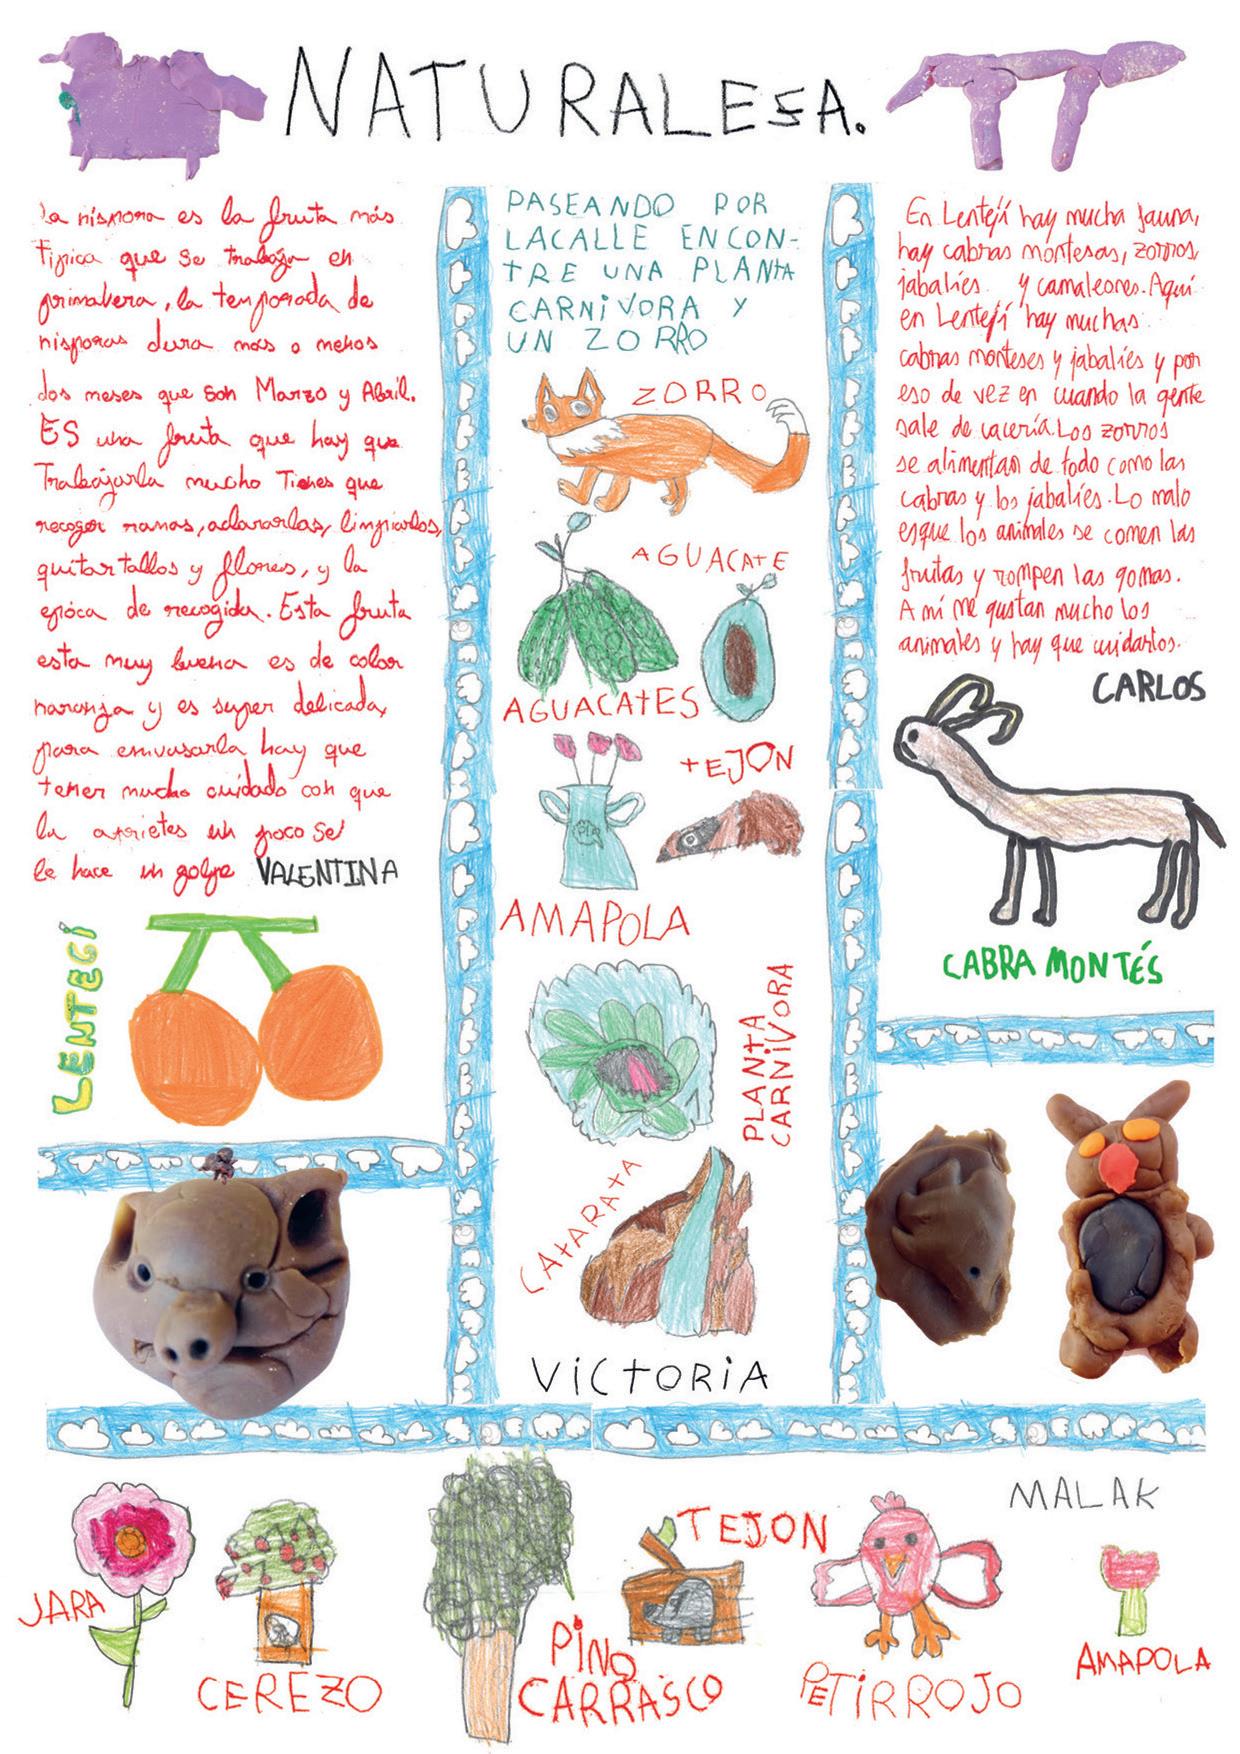 NATURALESA.
La níspora es la fruta más
típica que se trabaja en
primabera, la temporada de
nisporas dura mas o menos
dos meses que son Marzo y Abril.
ES una fruta que hay que
Trabajarla mucho Tienes que
recoger ramas, aclararlas, limpiarlas,
quitar tallos y flores, y la
epóca de recogida. Esta fruta
esta muy buena es de color
naranja y es super delicada,
para emvasarla hay que
tener mucho cuidado con que
la aprietes un poco se
le hace un golpe VALENTINA
LENTEGÍ
PASEANDO POR
LACALLE ENCON-
TRE UNA PLANTA
CARNIVORA Y
UN ZORRO
ZORRO
AGUACATE
AGUACATES
TEJON
AMAPOLA
PLANTA
CARNIVORA
CATARATA
VICTORIA
En Lentejí hay mucha fauna,
hay cabras montesas, zorros,
jabalíes y camaleones. Aquí
en Lentejí hay muchas
cabras monteses y jabalíes y por
eso de vez en cuando la gente
sale de cacería. Los zorros
se alimentan de todo como las
cabras y los jabalíes. Lo malo
esque los animales se comen las
frutas y rompen las gomas.
A mí me gustan mucho los
animales y hay que cuidarlos.
CARLOS
CABRA MONTÉS
MALAK
JARA
CEREZO
PINO
CARRASCO
TEJON
PETIRROJO
AMAPOLA